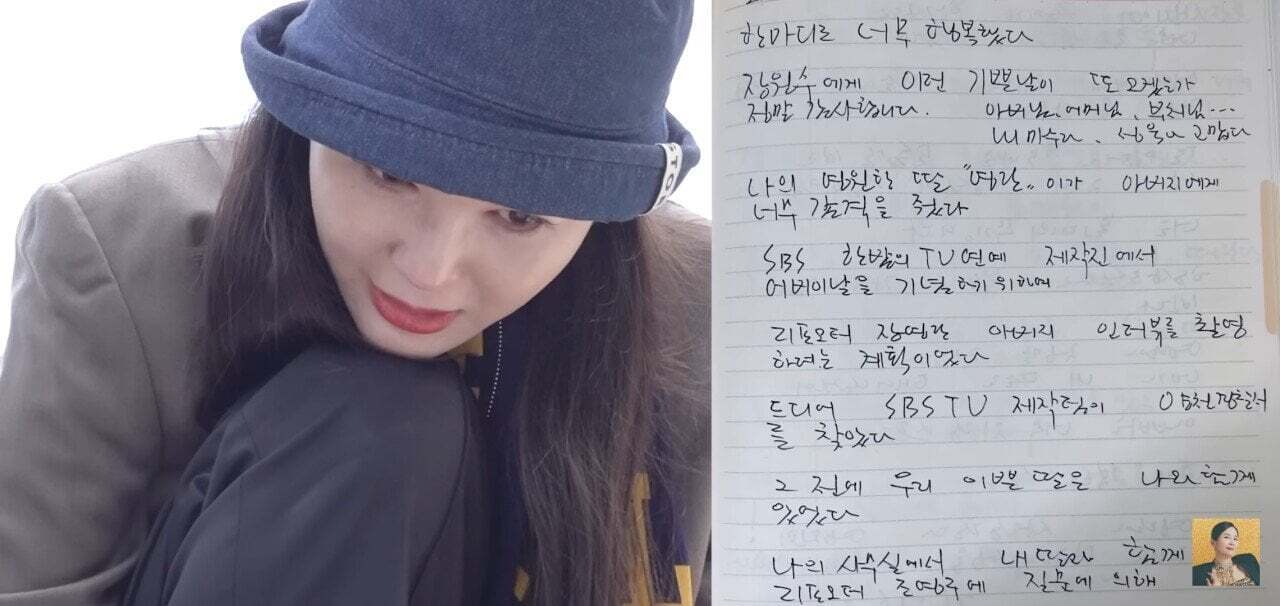 STO
한마디로 너무 행복했다
장원수에게 이런 기쁜날이 또 오겠는가
정말 감사합니다. 아버님, 어머님, 부처님...
고맙다
나의 영원한 딸 "영란"이가 아버지에게
너무 감격을 주었다
SBS 한밤의 TV연예 제작진에서
어버이날을 기념하기 위하여
리포오터 장영란 아버지 인터뷰를 촬영
하려는 계획이었다
드디어 SBS TV 제작팀이
를 찾았다
그 전에 우리 이쁜 딸은 나와 함께
있었다
나의 사무실에서 내 딸과 함께
리포오터 조영구에 질문에 의해